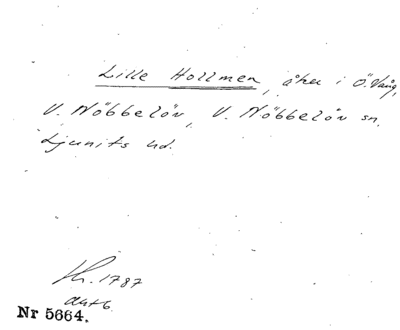 Lille Hollmen, åker i Ö. Vång,
V. Nöbbelöv, V. Nöbbelöv sn.
Ljunits hd.
1787
Nr 5664.